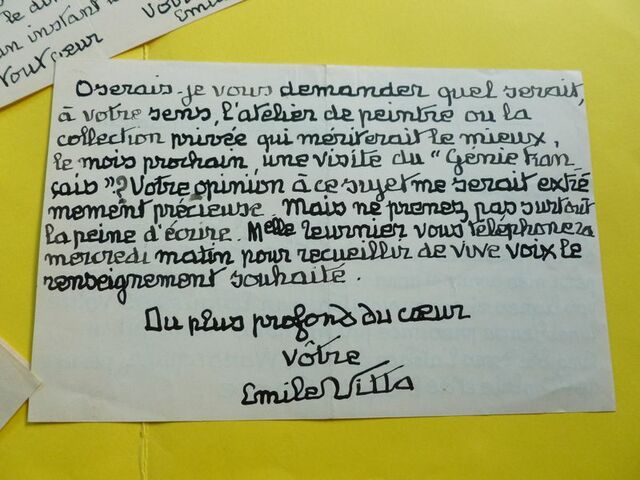 le d
un instant
Tout cœur
Vot
Emile
Oserais-je vous demander quel serait,
à votre sens, l'atelier de peintre ou la
collection privée qui mériterait le mieux,
le mois prochain, une visite du "Génie fran-
çais"? Votre opinion à ce sujet me serait extrê
mement précieuse. Mais ne prenez pas surtout
la peine d'écrire. Melle Meurnier vous téléphonera
mercredi matin pour recueillir de vive voix le
renseignement souhaité.
Du plus profond du cœur
vôtre
Emile Villa